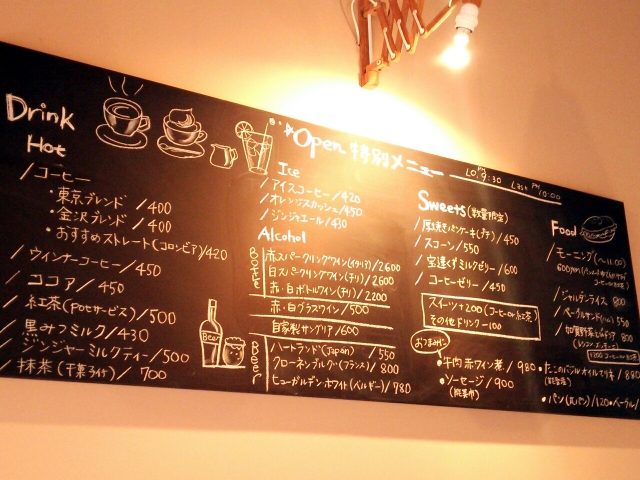 Drink
Hot
/コーヒー
・東京ブレンド /400
・金沢ブレンド /400
・おすすめストレート(コロンビア)/420
/ウィンナーコーヒー/450
/ココア/450
/紅茶(Potサービス)/500
/黒みつミルク/430
/ジンジャーミルクティー/500
/抹茶(干菓子付)/700
Open 特別メニュー
LO,PM9:30 Last PM10:00
Ice
/アイスコーヒー/420
/オレンジスカッシュ/450
/ジンジャエール/430
Alcohol
Bottle
赤スパークリングワイン(イタリア)/2600
白スパークリングワイン(チリ)/2600
赤・白ボトルワイン(チリ)/2200
赤・白グラスワイン/500
自家製サングリア/600
Beer
ハートランド(Japan)/550
クローネンブルグ(フランス)/800
ヒューガルデン・ホワイト(ベルギー)/780
Beer
Sweets(数量限定)
/厚焼きパンケーキ(プチ)/450
/スコーン/550
/宝達くずミルクゼリー/600
/コーヒーゼリー/450
スイーツ+200(コーヒーor紅茶)
その他ドリンク-100
おつまみに
・牛肉赤ワイン煮/980
・ソーセージ/900
Food
/モーニング(〜11:00)
600
/ジャルダンライス 800
/ベーグルサンド 550
800
・たこのバジルオイル 880
・パン(丸パン)/120・ベーグル/